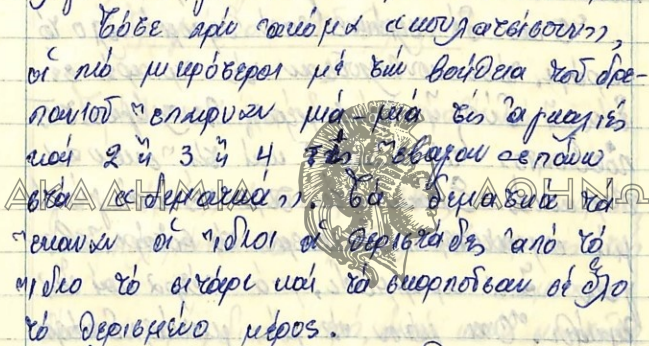 τότε πρίν ἀκόμα «κουλατσίσουν»,
οἱ πιό μικρότεροι μέ τήν βοήθεια τοῦ δρε-
πανιοῦ ἔπαιρναν μιά-μιά τίς ἀγκαλιές
καί 2 ἤ 3 ἤ 4 τίς ἔβαζαν ἐπάνω
στά «δεματικά». Τά δεματικά τά
ἔκαναν οἱ ἴδιοι οἱ θεριστάδες ἀπό τό
ἴδιο τό σιτάρι καί τά σκορποῦσαν σέ ὅλο
τό θερισμένο μέρος.
ΑΚΑΔΗΜΙΑ ΑΘΗΝΩ